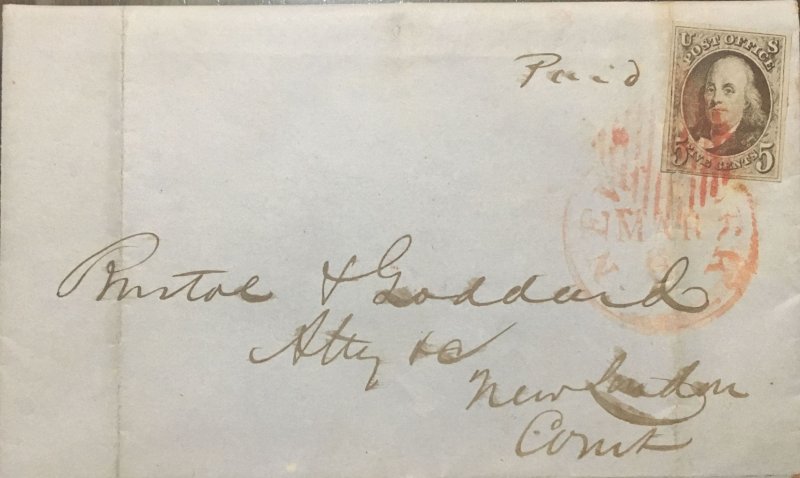 U S
POST OFFICE
Paid
5 FIVE CENTS 5
MAR
6
Bristol & Goddard
Atty &c
New London
Connt